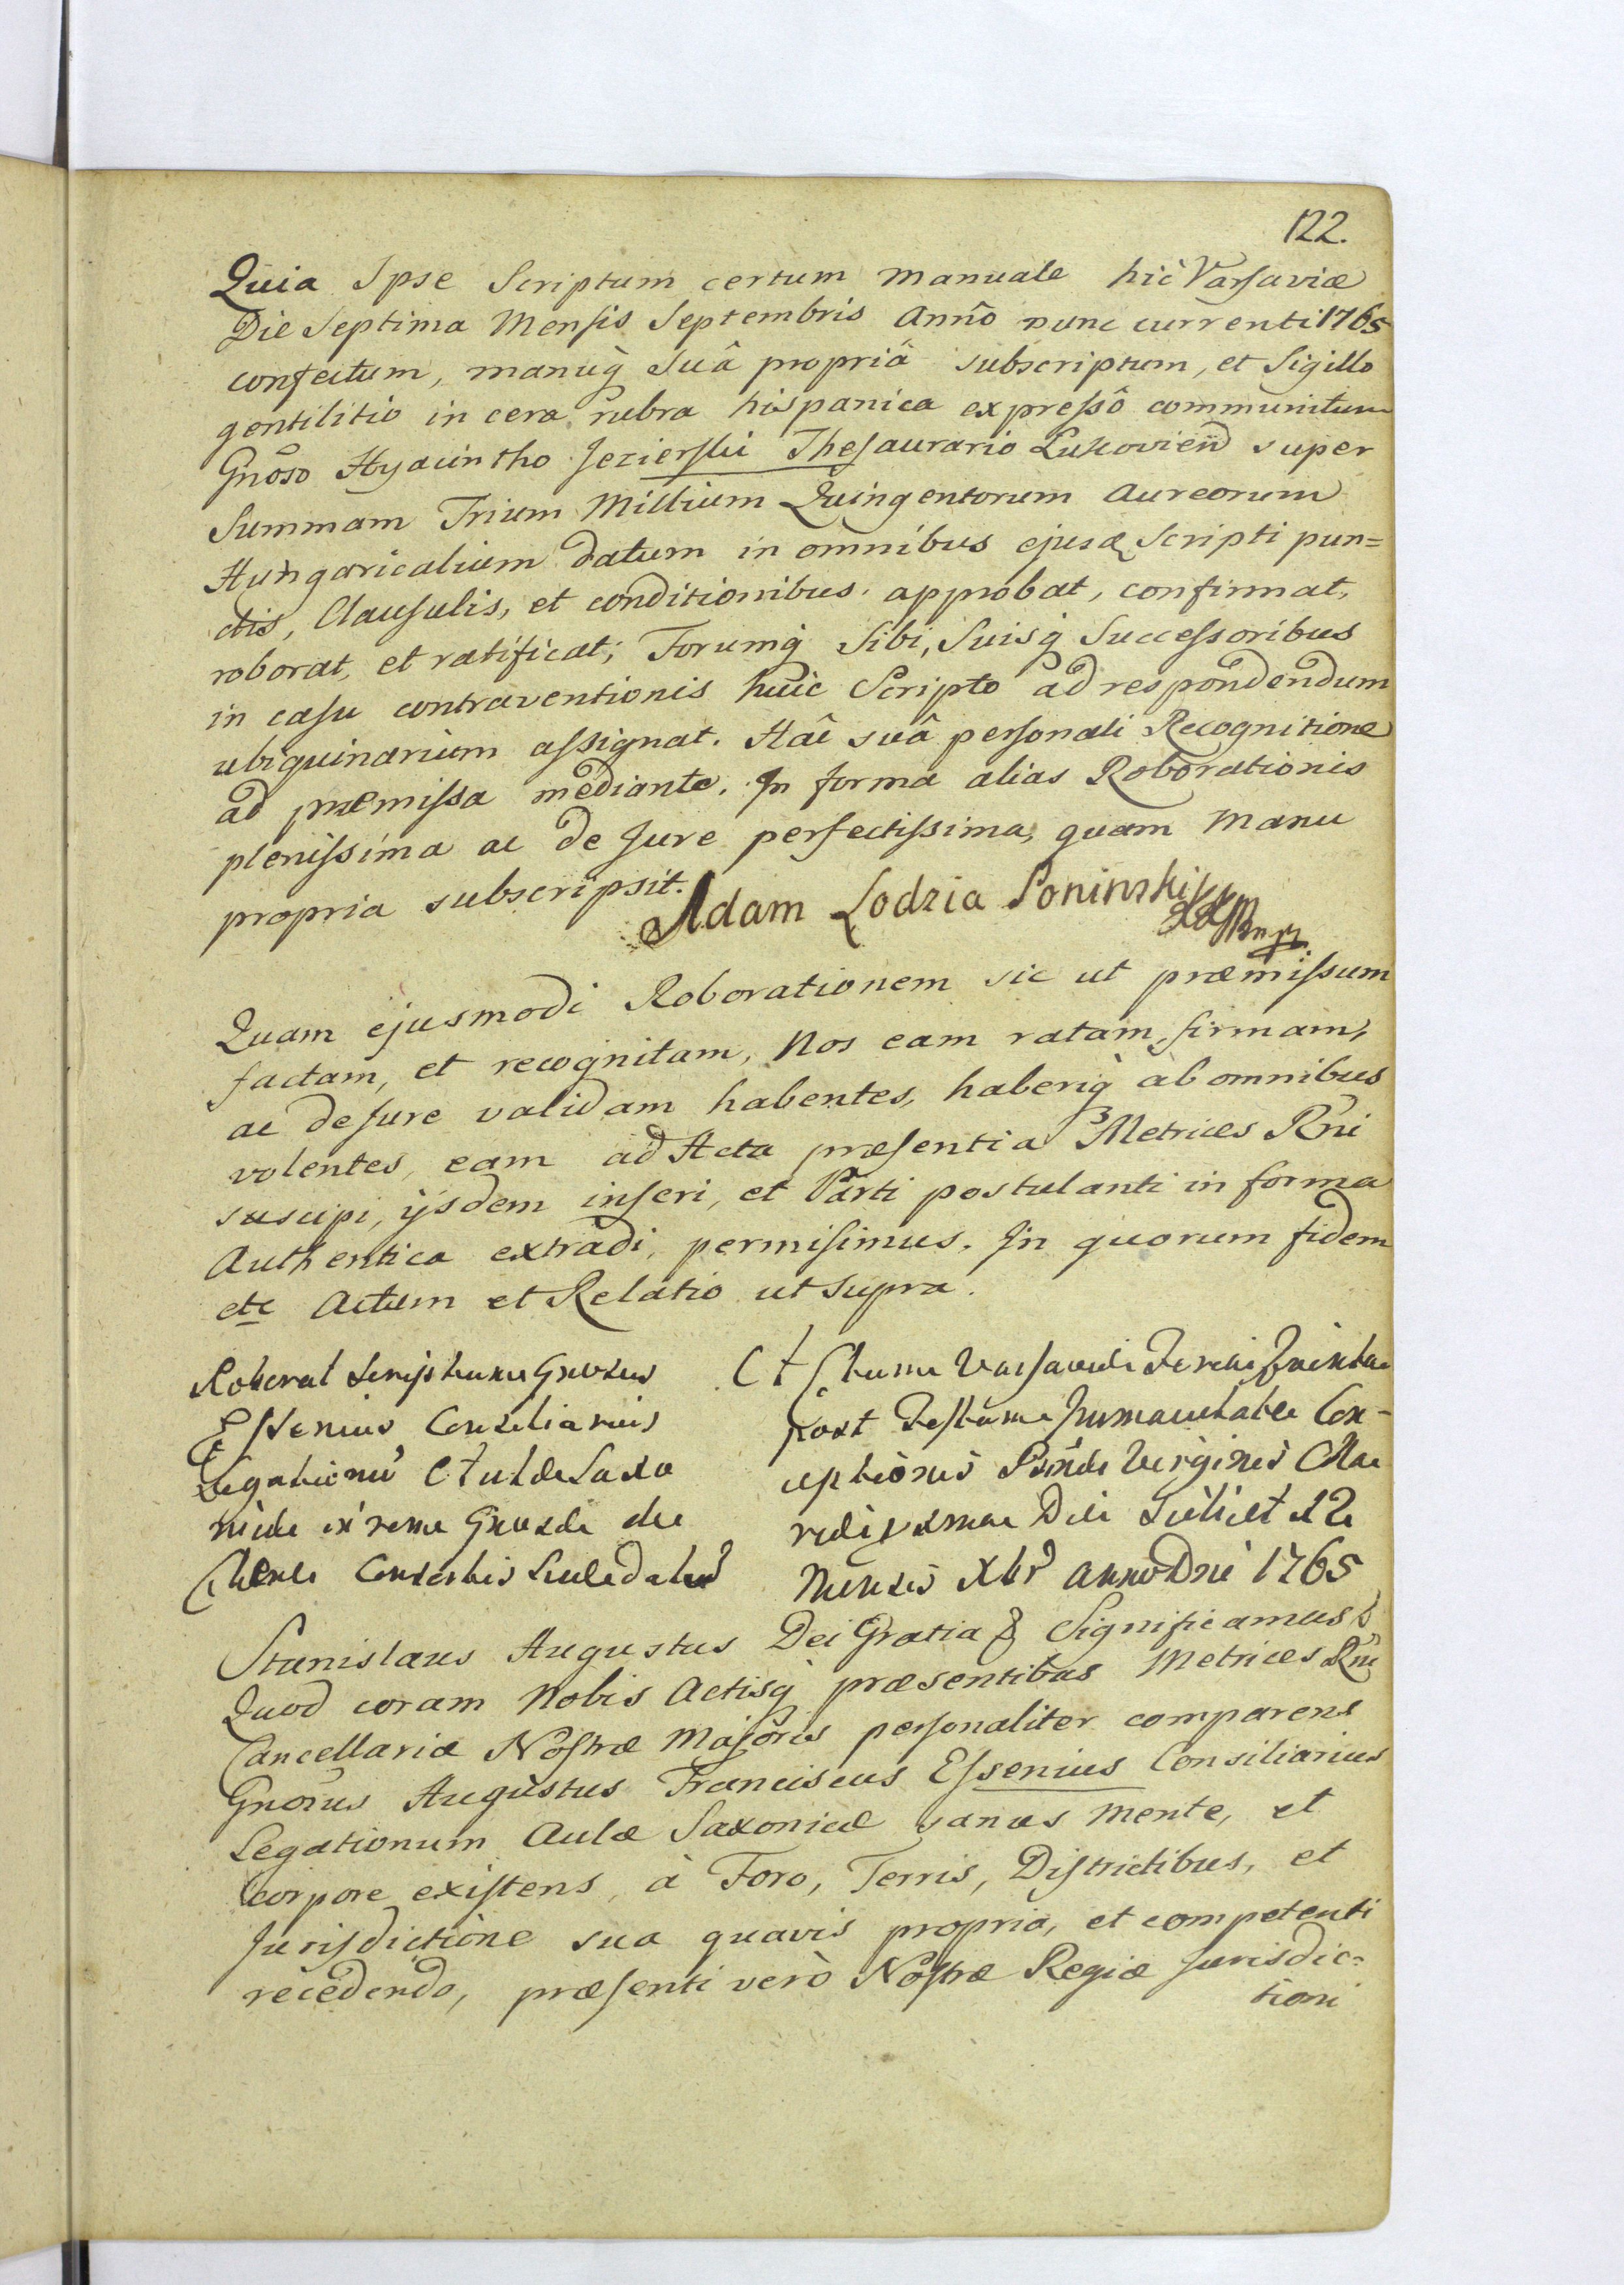 122.
Quia Ipse Scriptum certum manuale hic Varsaviæ
Die Septima Mensis Septembris Anno nunc currenti 1765
confectum, manuq̀ suâ propriâ subscriptum, et Sigillo
gentilitio in cera rubra hispanica expressô communitum
Gnoso Hyacintho Jezierski Thesaurario Lukovień super
Summam Trium Millium Quingentorum Aureorum
Hungaricalium datum in omnibus ejusd Scripti pun=
ctis, Clausulis, et conditionibus approbat, confirmat,
roborat, et ratificat; Forumq̀ Sibi, Suisq̀ Successoribus
in casu contraventionis huic Scripto ad respondendum
ubiquinarium assignat. Hâc suâ personali Recognitione
ad præmissa mediante. In forma alias Roborationis
plenissima ac de Jure perfectissima, quam Manu
propria subscripsit.
Adam Lodzia Poninski
Quam ejusmodi Roborationem sic ut præmissum
factam, et recognitam, Nos eam ratam, firmam,
ac de Jure validam habentes, haberiq̀ àb omnibus
volentes, eam ad Acta præsentia Metrices Rni
suscipi, ijsdem inseri, et Parti postulanti in forma
Authentica extradi, permisimus. In quorum fidem
etc Actum et Relatio ut supra.
Roborat Scriptum Gnosus
Essenius Consiliarius
Legationũ Aulæ Saxo
nicæ in rem Gnosæ de
Consortis Suæ datum
Actum Varsaviæ Feria Quinta
post Festum Immaculatæ Con-
ceptionis Bmæ Virginis Ma
riæ proxima Die Scilicet 12
Mensis Xbr Anno Dni 1765
Stanislaus Augustus Dei Gratia & Significamus &
Quod coram Nobis Actisq̀ præsentibus Metrices Rni
Cancellariæ Nostræ Majoris personaliter comparens
Gnosus Augustus Franciscus Essenius Consiliarius
Legationum Aulæ Saxonicæ sanus mente, et
corpore existens, à Foro, Terris, Districtibus, et
Jurisdictione sua quavis propria, et competenti
recedendo, præsenti verò Nostræ Regiæ Jurisdic=
tioni